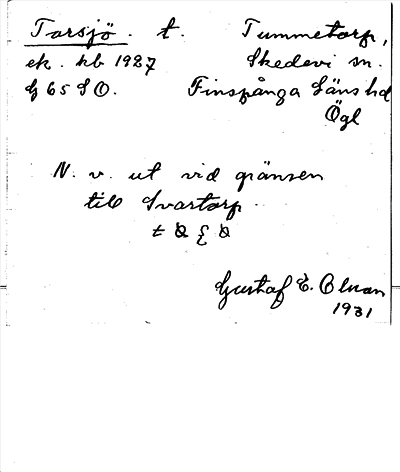 Torsjö. t. Tummetorp,
ek. kb 1927 Skedevi sn.
G 65 S O. Finspånga Läns hd
Ögl
N. v. ut vid gränsen
till Svartorp.
Gustaf E. Olman
1931